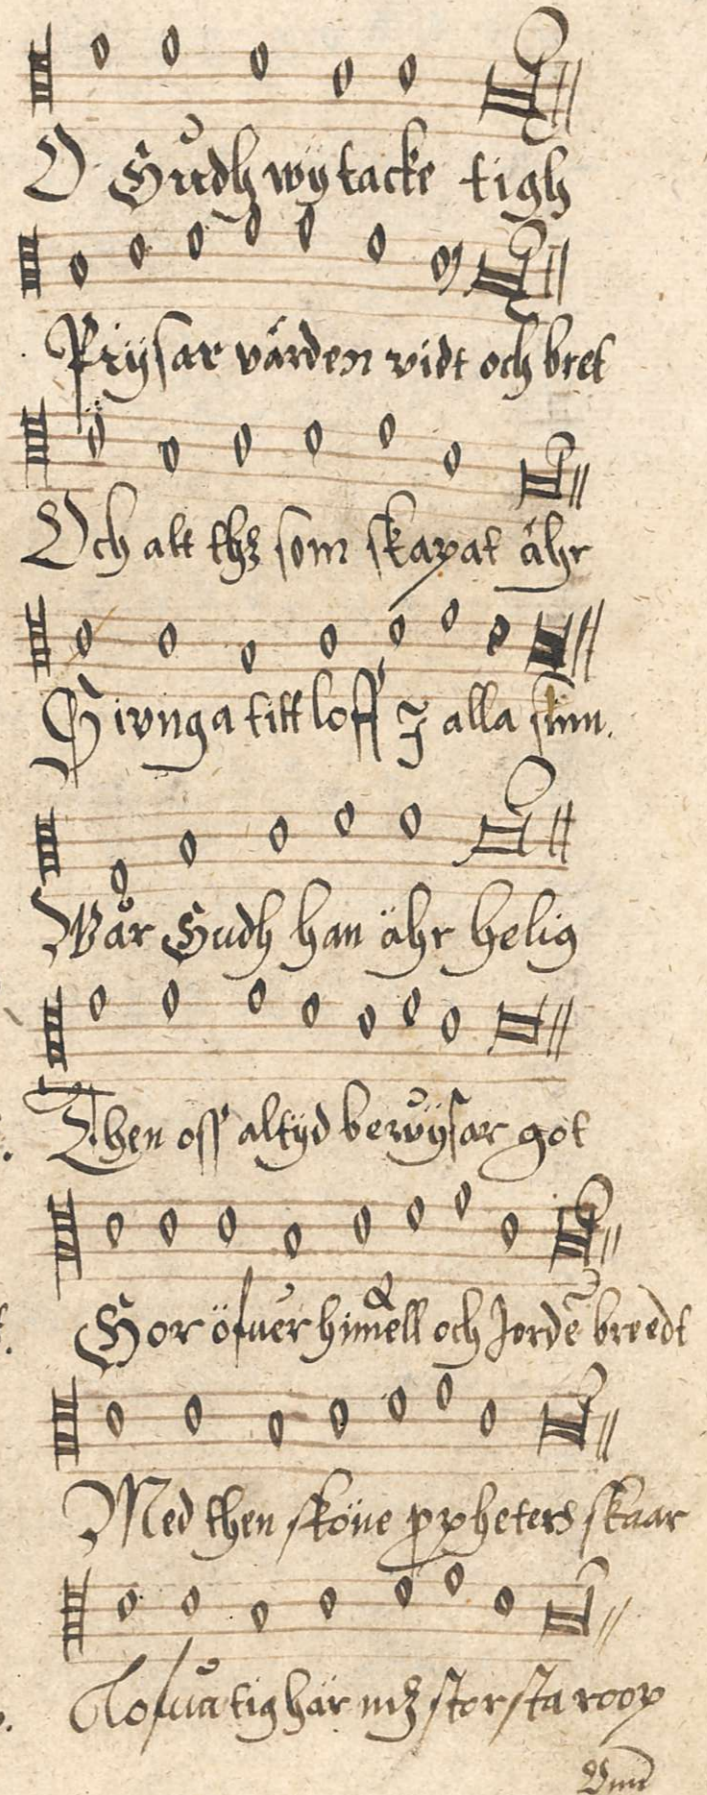 O Gudh wij tacke tigh
Prijsar värden vidt och bret
Och alt thz som skapat ähr
Siunga titt loff J alla sinn.
Wår Gudh han ähr helig
Then oss altijd bevijsar got
Gor öfuer himell och Jordē breedt
Med then sköne propheters skaar
Lofua tig här mz storsta roop